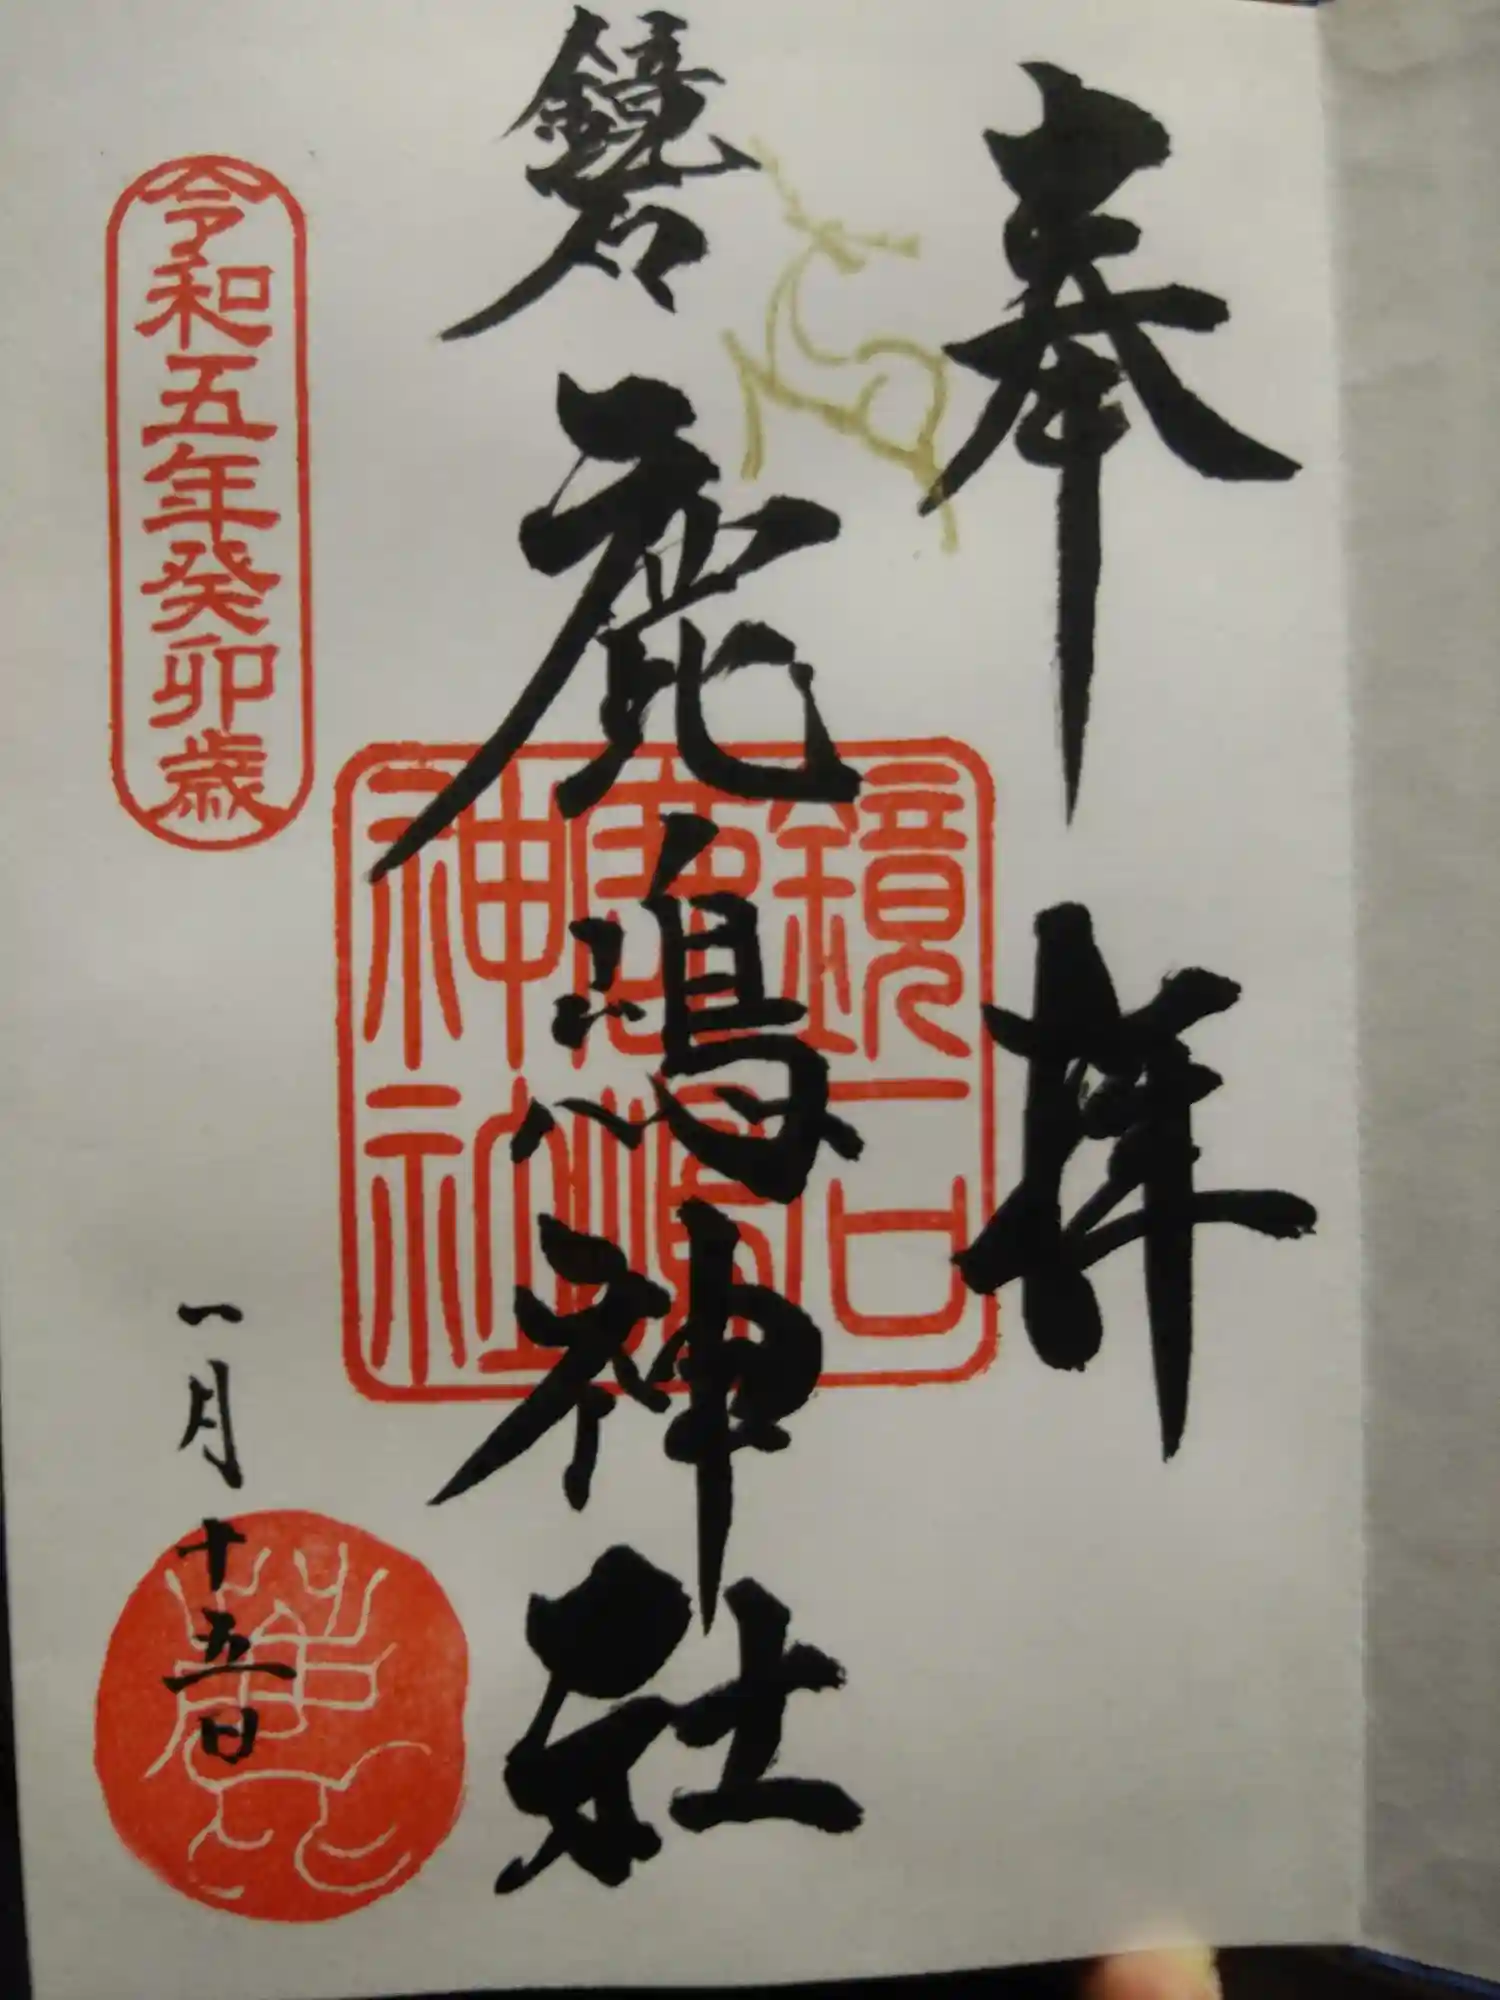 奉拝
鏡石
鹿嶋神社
鏡石
鹿嶋
神社
令和五年癸卯歳
一月十五日